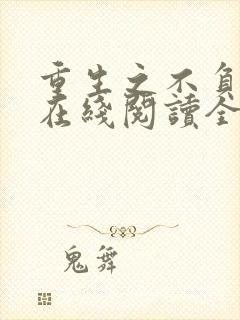 重生之不負
在綫閱讀全
鬼舞